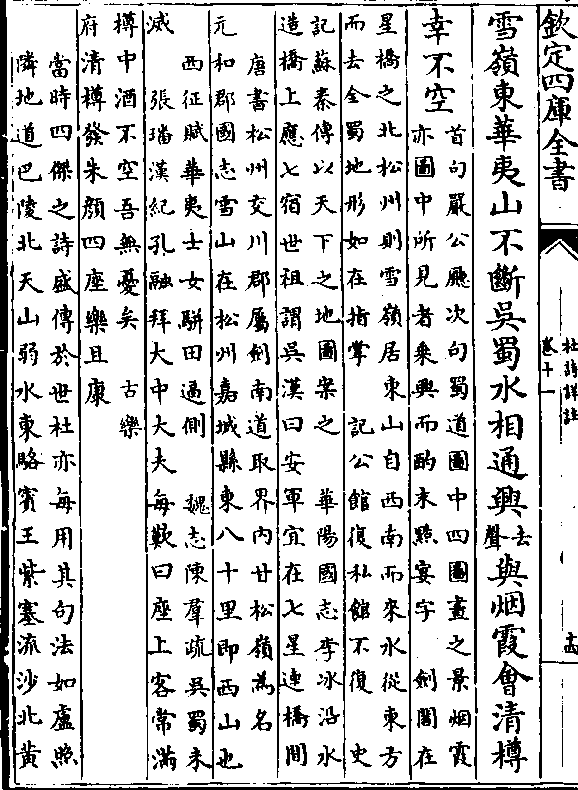 欽定四庫全書
杜詩詳註
卷十一
雪嶺東華夷山不斷吳蜀水相通興去聲與烟霞會清樽
幸不空
首句嚴公廳次句蜀道圖中四圖畫之景烟霞
亦圖中所見者乗興而酌末㸃宴字 劍閣在
星橋之北松州則雪嶺居東山自西南而來水從東方
而去全蜀地形如在指掌 記公館復私館不復 史
記蘇秦傳以天下之地圖案之 華陽國志李冰沿水
造橋上應七宿世祖謂吳漢曰安軍宜在七星連橋間
唐書松州交川郡屬劍南道取界内甘松嶺為名
元和郡國志雪山在松州嘉城縣東八十里即西山也
西征賦華夷士女駢田逼側 魏志陳羣疏吳蜀未
滅 張璠漢紀孔融拜大中大夫每歎曰座上客常滿
樽中酒不空吾無憂矣 古樂
府清樽發朱顔四座樂且康
當時四傑之詩盛傳於世杜亦每用其句法如盧照
隣地道巴陵北天山弱水東駱賓王紫塞流沙北黄